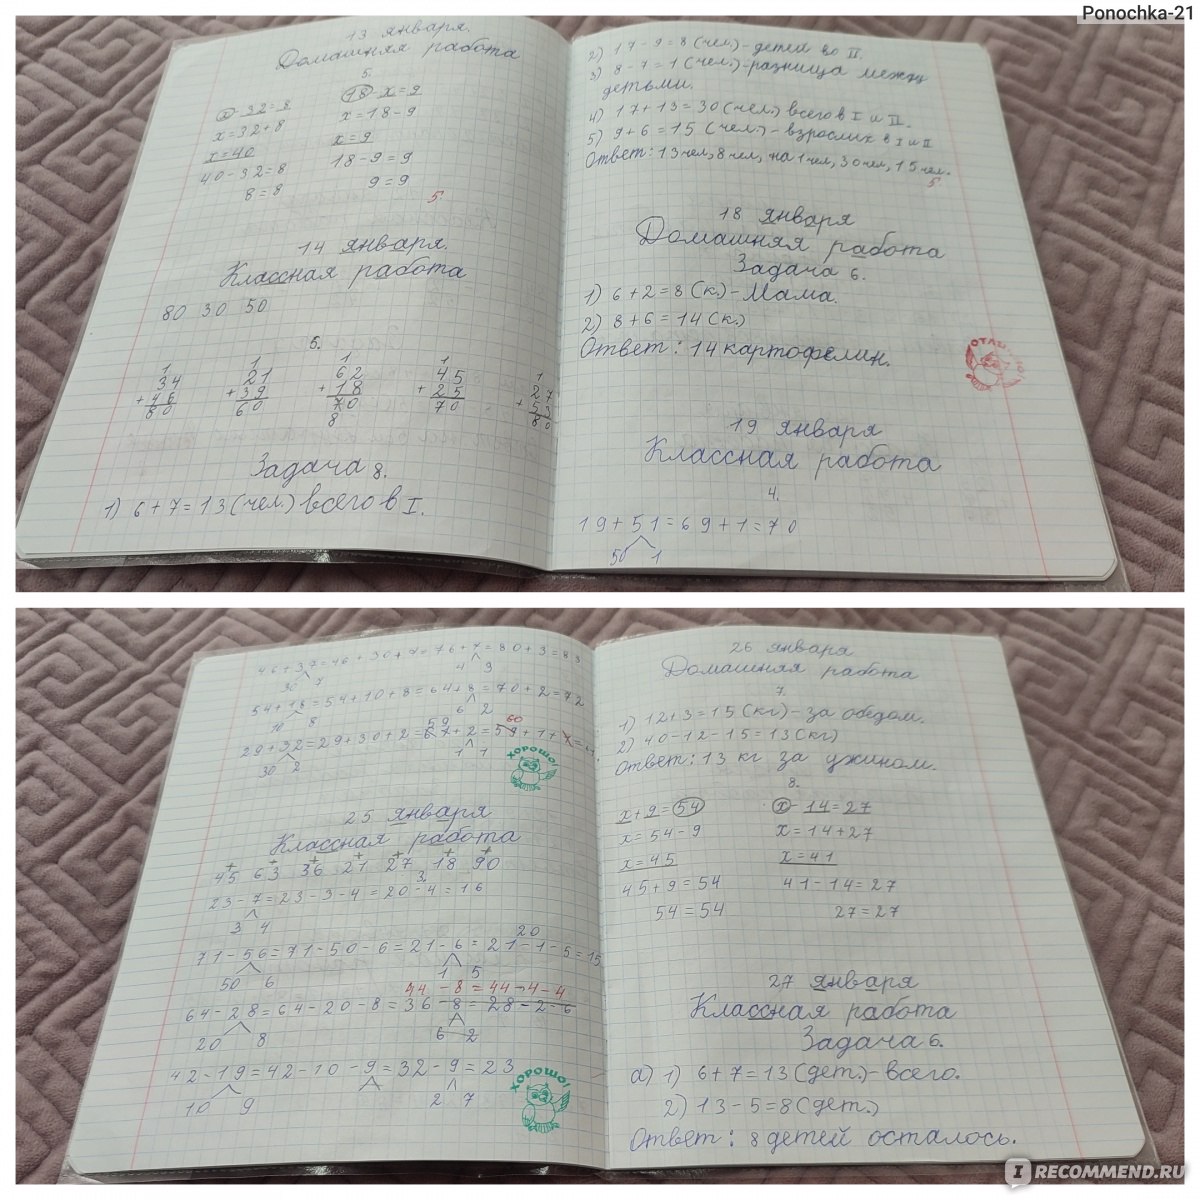 Ponochka-21
13 января.
Домашняя работа
5.
x - 32 = 8
x = 32 + 8
x = 40
40 - 32 = 8
8 = 8
18 - x = 9
x = 18 - 9
x = 9
18 - 9 = 9
9 = 9
5
14 января.
Классная работа
80 30 50
5.
1 1 1 1 1
34 21 62 45 27
+46 +39 +18 +25 +53
80 60 70 70 80
8
Задача 8.
1) 6 + 7 = 13 (чел.) всего в I.
2) 17 - 9 = 8 (чел.) - детей во II.
3) 8 - 7 = 1 (чел.) - разница между
детьми.
4) 17 + 13 = 30 (чел.) всего в I и II.
5) 9 + 6 = 15 (чел.) - взрослих в I и II
Ответ: 13 чел, 8 чел, на 1 чел, 30 чел, 15 чел.
5
18 января
Домашняя работа
Задача 6.
1) 6 + 2 = 8 (к.) - Мама.
2) 8 + 6 = 14 (к.)
Ответ: 14 картофелин.
19 января
Классная работа
4.
19 + 51 = 69 + 1 = 70
50 1
46 + 37 = 46 + 30 + 7 = 76 + 7 = 80 + 3 = 83
30 7 4 3
54 + 18 = 54 + 10 + 8 = 64 + 8 = 70 + 2 = 72
10 8 6 2
59 60
29 + 32 = 29 + 30 + 2 = + 2 = 59 + 1 +
30 2 1 1
ХОРОШО!
25 января
Классная работа
+ + + + + + +
45 63 36 21 27 18 90
3.
23 - 7 = 23 - 3 - 4 = 20 - 4 = 16
3 4
20
71 - 56 = 71 - 50 - 6 = 21 - 6 = 21 - 1 - 5 = 15
50 6 1 5
44 - 8 = 44 - 4 - 4
64 - 28 = 64 - 20 - 8 = 36 - 8 = 28 - 2 - 6
20 8 6 2
42 - 19 = 42 - 10 - 9 = 32 - 9 = 23
10 9 2 7
ХОРОШО!
26 января
Домашняя работа
7.
1) 12 + 3 = 15 (кг) - за обедом.
2) 40 - 12 - 15 = 13 (кг)
Ответ: 13 кг за ужином.
8.
x + 9 = 54
x = 54 - 9
x = 45
45 + 9 = 54
54 = 54
x - 14 = 27
x = 14 + 27
x = 41
41 - 14 = 27
27 = 27
27 января
Классная работа
Задача 6.
а) 1) 6 + 7 = 13 (дет.) - всего.
2) 13 - 5 = 8 (дет.)
Ответ: 8 детей осталось.
IRECOMMEND.RU